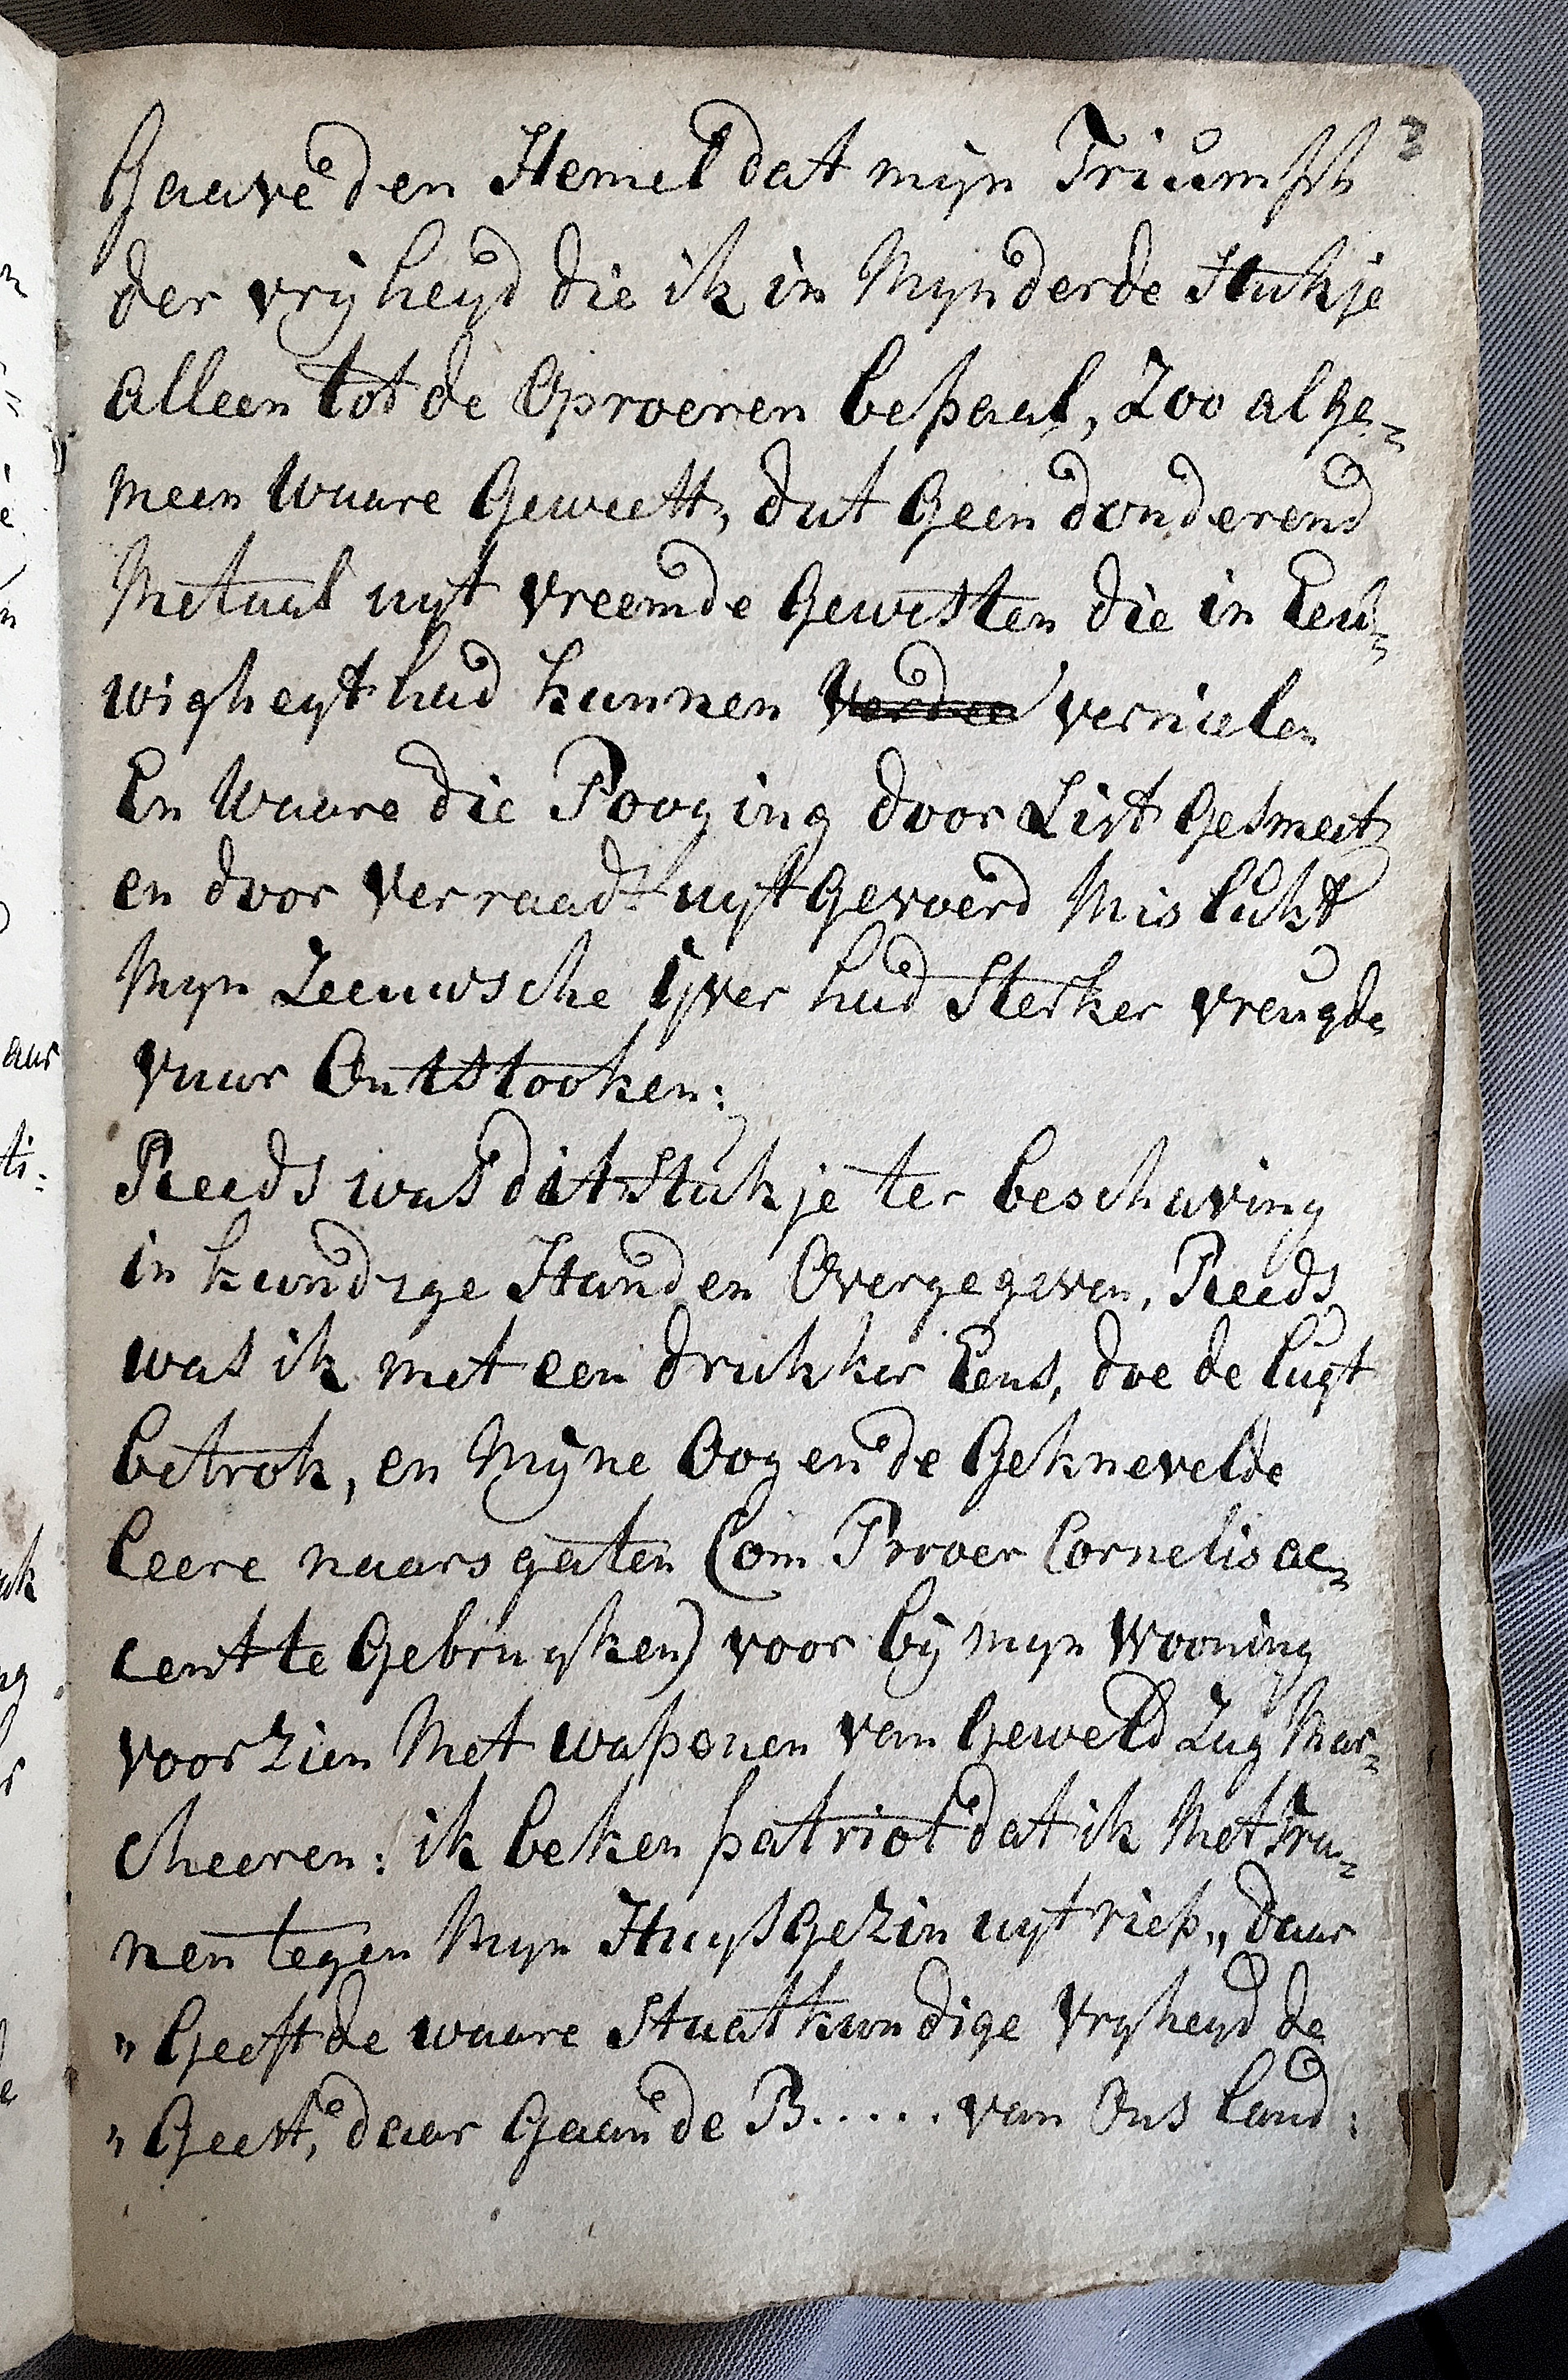 3
Gaave den Hemel dat mijn Triumph
der vrijheyd die ik in Mijn derde Stukje
alleen tot de Oproeren bepaal, Zoo alge=
meen waare Geweest, dat Geen donderend
Metaal uyt vreemde Gewesten die in Eeu=
wigheyt had kunnen vernielen
En Waare die Pooging door List Gesmeet
en door Verraadt uytgevoerd Mislukt
Mijn Zeeuwsche ijver had Sterker vreugde
vuur Ontstooken:
Reeds was dit Stukje ter beschaving
in kundige Handen Overgegeven, Reeds
was ik met een drukker Eens, doe de lugt
betrok, en Mijne Oogen de Geknevelde
leere naarsgaten (om Prover Cornelis ac=
cent te Gebruyken) voor bij mijn Wooning
voorzien Met wapenen van Geweld Zag Mar=
cheeren: ik beken patriot dat ik Met Tra=
nen tegen Mijn Huysgezin uytriep „ daar
„ Geeft de waare Staatkundige Vryheyd de
„ Geest, daar Gaan de B..... van Ons land: